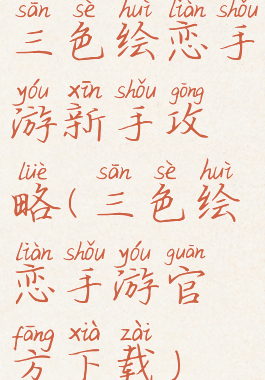 sān sè huì liàn shǒu
三色绘恋手
yóu xīn shǒu gōng
游新手攻
lüè sān sè huì
略(三色绘
liàn shǒu yóu guān
恋手游官
fāng xià zài
方下载)